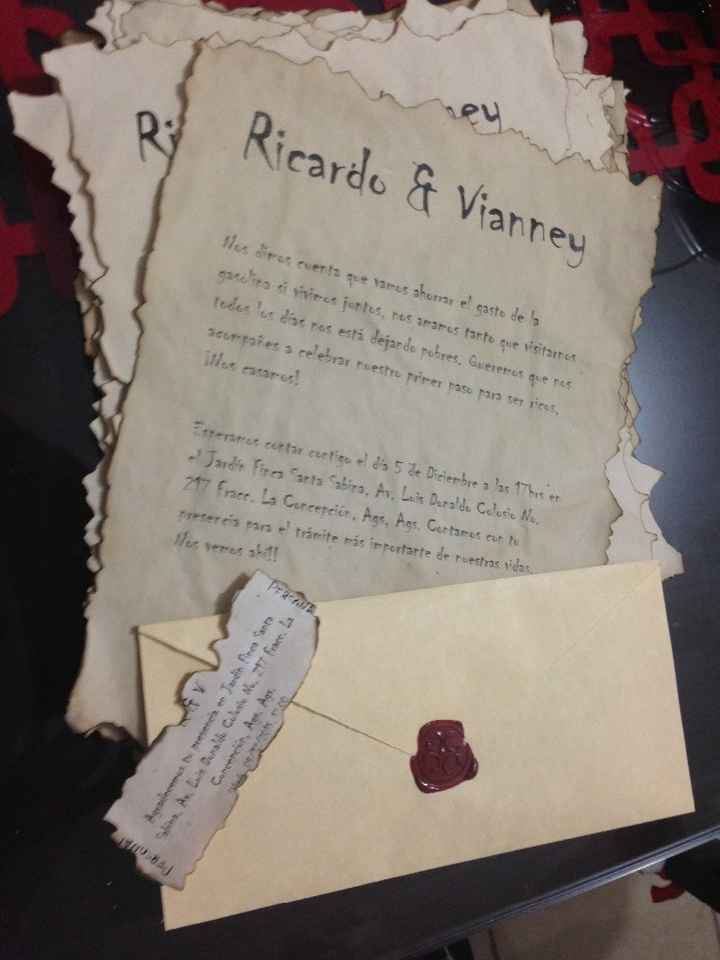 Ri
ney
Ricardo & Vianney
Nos dimos cuenta que vamos ahorrar el gasto de la
gasolina si vivimos juntos, nos amamos tanto que visitarnos
todos los días nos está dejando pobres. Queremos que nos
acompañes a celebrar nuestro primer paso para ser ricos,
¡Nos casamos!
Esperamos contar contigo el día 5 de Diciembre a las 17hrs en
el Jardín Finca Santa Sabina, Av. Luis Donaldo Colosio No.
217 Fracc. La Concepción, Ags, Ags. Contamos con tu
presencia para el trámite más importante de nuestras vidas.
Nos vemos ahí!!
& V
Agradecemos tu presencia en Jardín Finca Santa
Sabina, Av. Luis Donaldo Colosio No. 217 Fracc. La
Concepción, Ags, Ags.